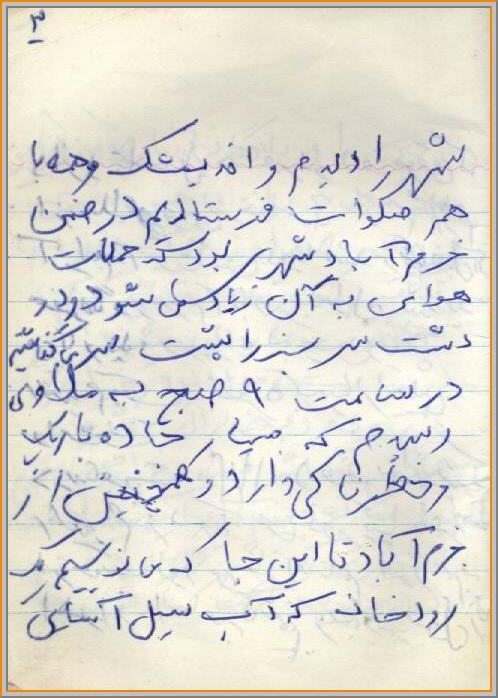 ۳
شهر را دیدم و اندیمشک و همه با
هم صلوات فرستادیم در ضمن
خرم آباد شهری بود که حملات
هوایی به آن زیاد می شود در
دشت سر سبز را پشت سر می گذاشتیم
در ساعت ۹ صبح به ملاوی
رسیدم که جاده باریک
و خطرناکی دارد و همچنین از
خرم آباد تا این جا که می نویسیم یک
رودخانه که آب سیل آسای